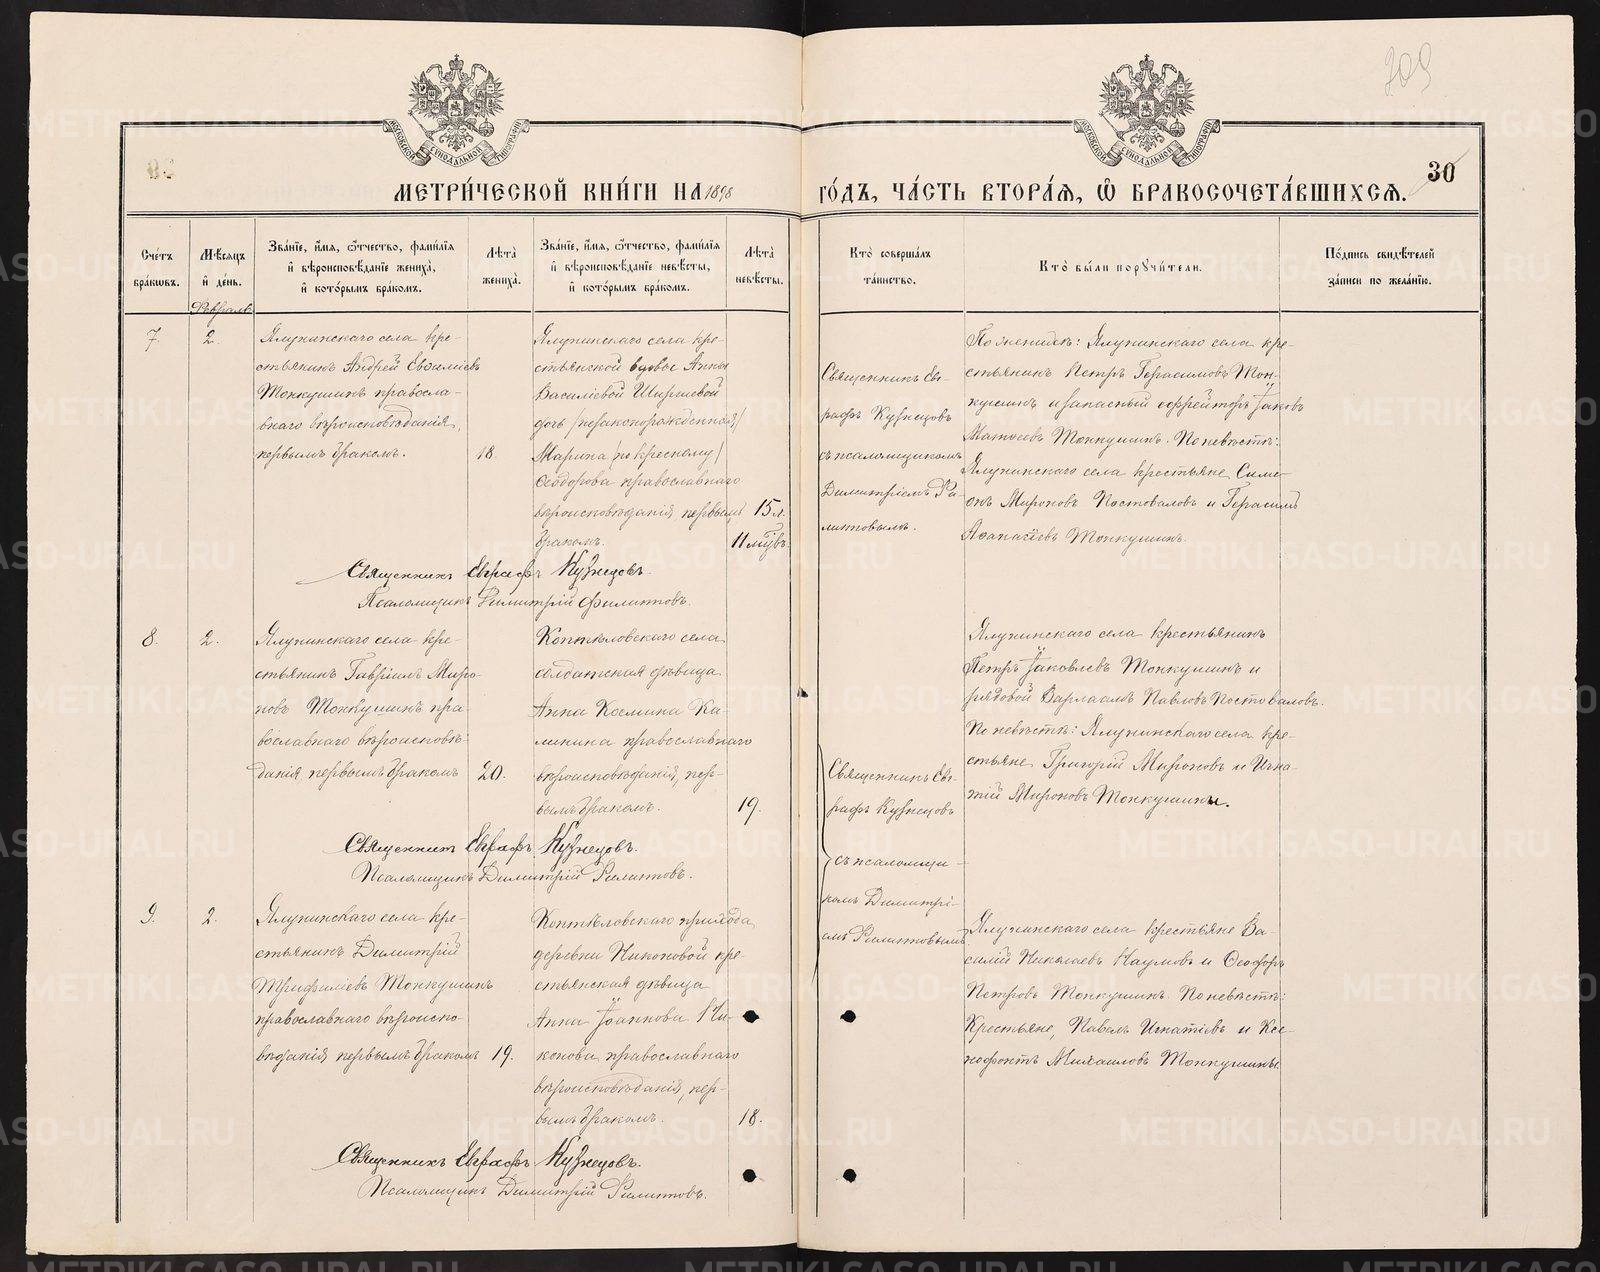 209
30
МЕТРИ́ЧЕСКОЙ КНИ́ГИ НА 1898
ГО́ДЪ, ЧА́СТЬ ВТОРА́Я, Ѽ БРАКОСОЧЕТА́ВШИХСЯ.
Сче́тъ бра́кѡвъ.
Мѣ́сяцъ и҆ де́нь.
Зва́нїе, и҆́мя, ѻ҆́тчество, фами́лїя и҆ вѣроисповѣ́данїе жениха̀, и҆ кото́рымъ бра́комъ.
Лѣ́та жениха̀.
Зва́нїе, и҆́мя, ѻ҆́тчество, фами́лїя и҆ вѣроисповѣ́данїе невѣ́сты, и҆ кото́рымъ бра́комъ.
Лѣ́та невѣ́сты.
Кто̀ соверша́лъ та́инство.
Кто̀ бы́ли порꙋчи́тели.
По́дпись свидѣ́телей за́писи по жела́нїю.
Февраль
7.
2.
Ялунинскаго села кре-
стьянинъ Андрей
Тонкушинъ правосла-
внаго вѣроисповѣданія,
первымъ бракомъ.
18.
Ялунинскаго села кре-
стьянской вдовы Анны
Василіевой
дочь /незаконорожденная/
Марина /по крестному/
Ѳеодорова православнаго
вѣроисповѣданія первымъ
бракомъ.
15 л.
11 мѣсв.
Священникъ Ев-
графъ Кузнецовъ
съ псаломщикомъ
Димитріемъ Фи-
липповымъ.
По женихѣ: Ялунинскаго села кре-
стьянинъ Петръ Герасимовъ Тон-
кушинъ и запасный ефрейторъ Іаковъ
Матѳеевъ Тонкушинъ. По невѣстѣ:
Ялунинскаго села крестьяне Симе-
онъ Мироновъ Постоваловъ и Герасимъ
Аѳанасіевъ Тонкушинъ.
Священникъ Евграфъ Кузнецовъ.
Псаломщикъ Димитрій Филипповъ.
8.
2.
Ялунинскаго села кре-
стьянинъ Гавріилъ Миро-
новъ Тонкушинъ пра-
вославнаго вѣроисповѣ-
данія первымъ бракомъ
20.
Коптѣловскаго села
солдатская дѣвица
Анна Космина Ка-
линина православнаго
вѣроисповѣданія, пер-
вымъ бракомъ.
19.
Священникъ Ев-
графъ Кузнецовъ
съ псаломщи-
комъ Димитрі-
емъ Филипповымъ
Ялунинскаго села крестьянинъ
Петръ Іаковлевъ Тонкушинъ и
рядовой Варлаамъ Павловъ Постоваловъ.
По невѣстѣ: Ялунинскаго села кре-
стьяне Григорій Мироновъ и Игна-
тій Мироновъ Тонкушины.
Священникъ Евграфъ Кузнецовъ.
Псаломщикъ Димитрій Филипповъ.
9.
2.
Ялунинскаго села кре-
стьянинъ Димитрій
Трифиліевъ Тонкушинъ
православнаго вѣроиспо-
вѣданія первымъ бракомъ
19.
Коптѣловскаго прихода
деревни Никоновой кре-
стьянская дѣвица
Анна Іоаннова Ни-
конова православнаго
вѣроисповѣданія, пер-
вымъ бракомъ.
18.
Ялунинскаго села крестьяне Ва-
силій Николаевъ Наумовъ и Ѳеодоръ
Петровъ Тонкушинъ. По невѣстѣ:
Крестьяне, Павелъ Игнатіевъ и Ксе-
нофонтъ Михаиловъ Тонкушины.
Священникъ Евграфъ Кузнецовъ.
Псаломщикъ Димитрій Филипповъ.